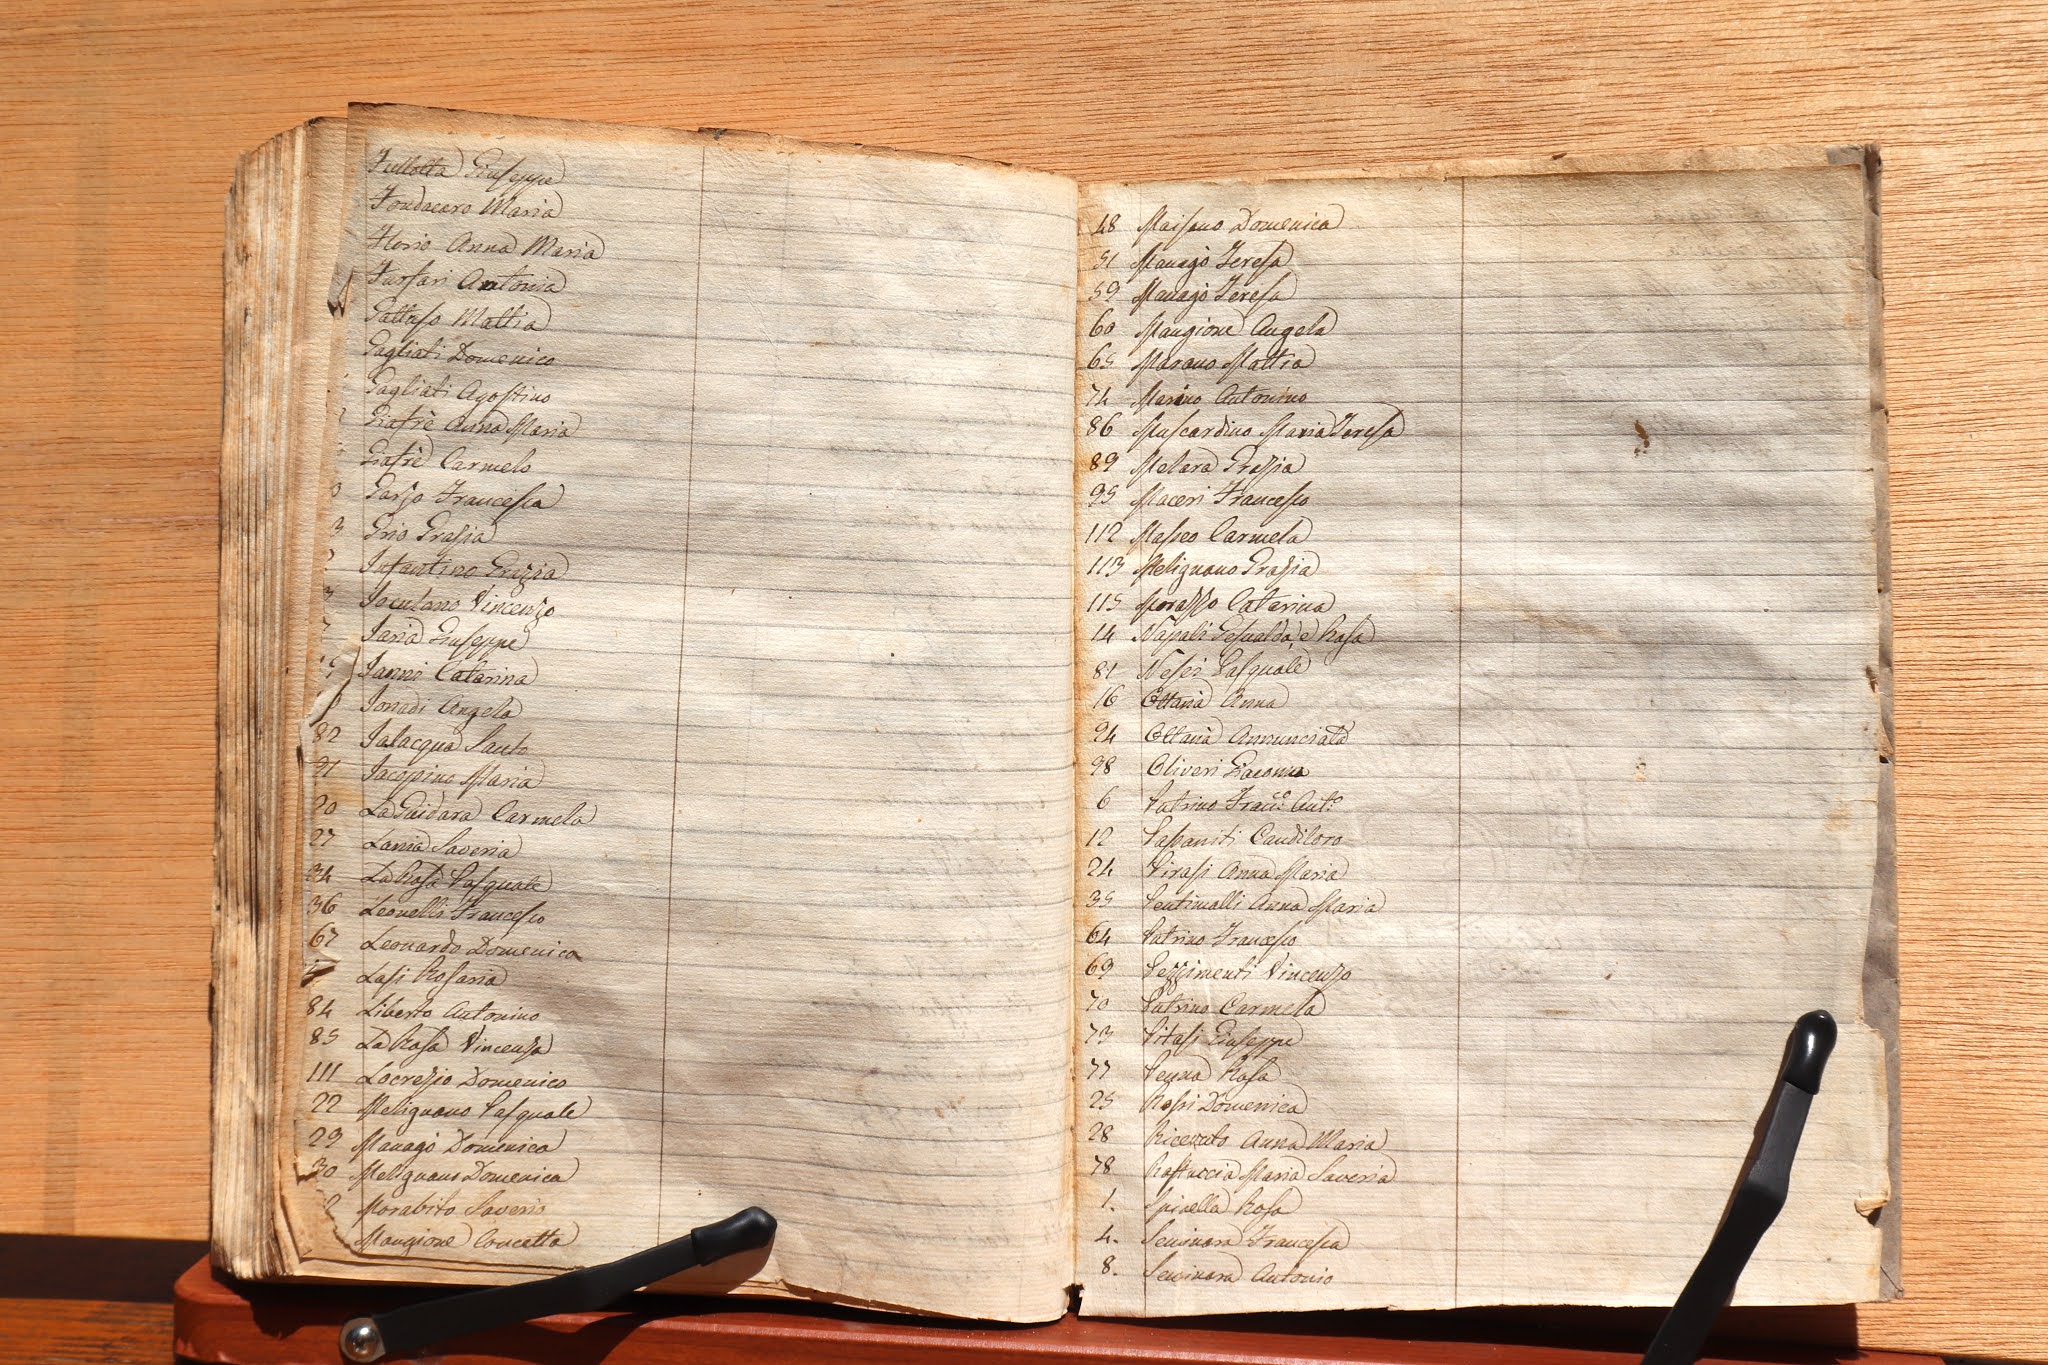 Fullotta Giuseppe
Fondacaro Maria
Florio Anna Maria
Furfari Antonia
Gattuso Mattia
Gagliati Domenico
Gagliati Agostino
Giafrè Anna Maria
Giafrè Carmelo
Garzo Francesca
3 Grio Grazia
Infantino Grazia
Joculano Vincenzo
Jaria Giuseppe
Janni Catarina
Jonadi Angela
82 Jalacqua Santo
91 Jacopino Maria
20 La Guidara Carmela
27 Lania Saveria
34 La Rosa Pasquale
36 Leonelli Francesco
67 Leonardo Domenica
Lasi Rosaria
84 Liberto Antonino
85 La Rosa Vincenza
111 Locrezzio Domenico
22 Melignano Pasquale
29 Managò Domenica
30 Melignano Domenica
2 Morabito Saverio
Mangione Concetta
48 Maisano Domenica
51 Managò Teresa
59 Managò Teresa
60 Mangione Angela
65 Marano Mattia
74 Marino Antonino
86 Muscardino Maria Teresa
89 Melara Grazzia
95 Maceri Francesco
112 Masseo Carmela
113 Melignano Grazzia
115 Morazzo Catarina
14 Napoli Gesualda, e Rosa
81 Nesci Pasquale
16 Ottanà Anna
94 Ottanà Annunciata
98 Oliveri Giacoma
6 Putrino Franc.º Ant.º
12 Passaniti Candiloro
24 Pirasi Anna Maria
35 Pentimalli Anna Maria
64 Putrino Francesco
69 Pezzimenti Vincenzo
70 Putrino Carmela
73 Pitasi Giuseppe
77 Penna Rosa
25 Rossi Domenica
28 Ricevuto Anna Maria
78 Rastuccia Maria Saveria
1. Spinella Rosa
4. Seminara Francesca
8. Seminara Antonio